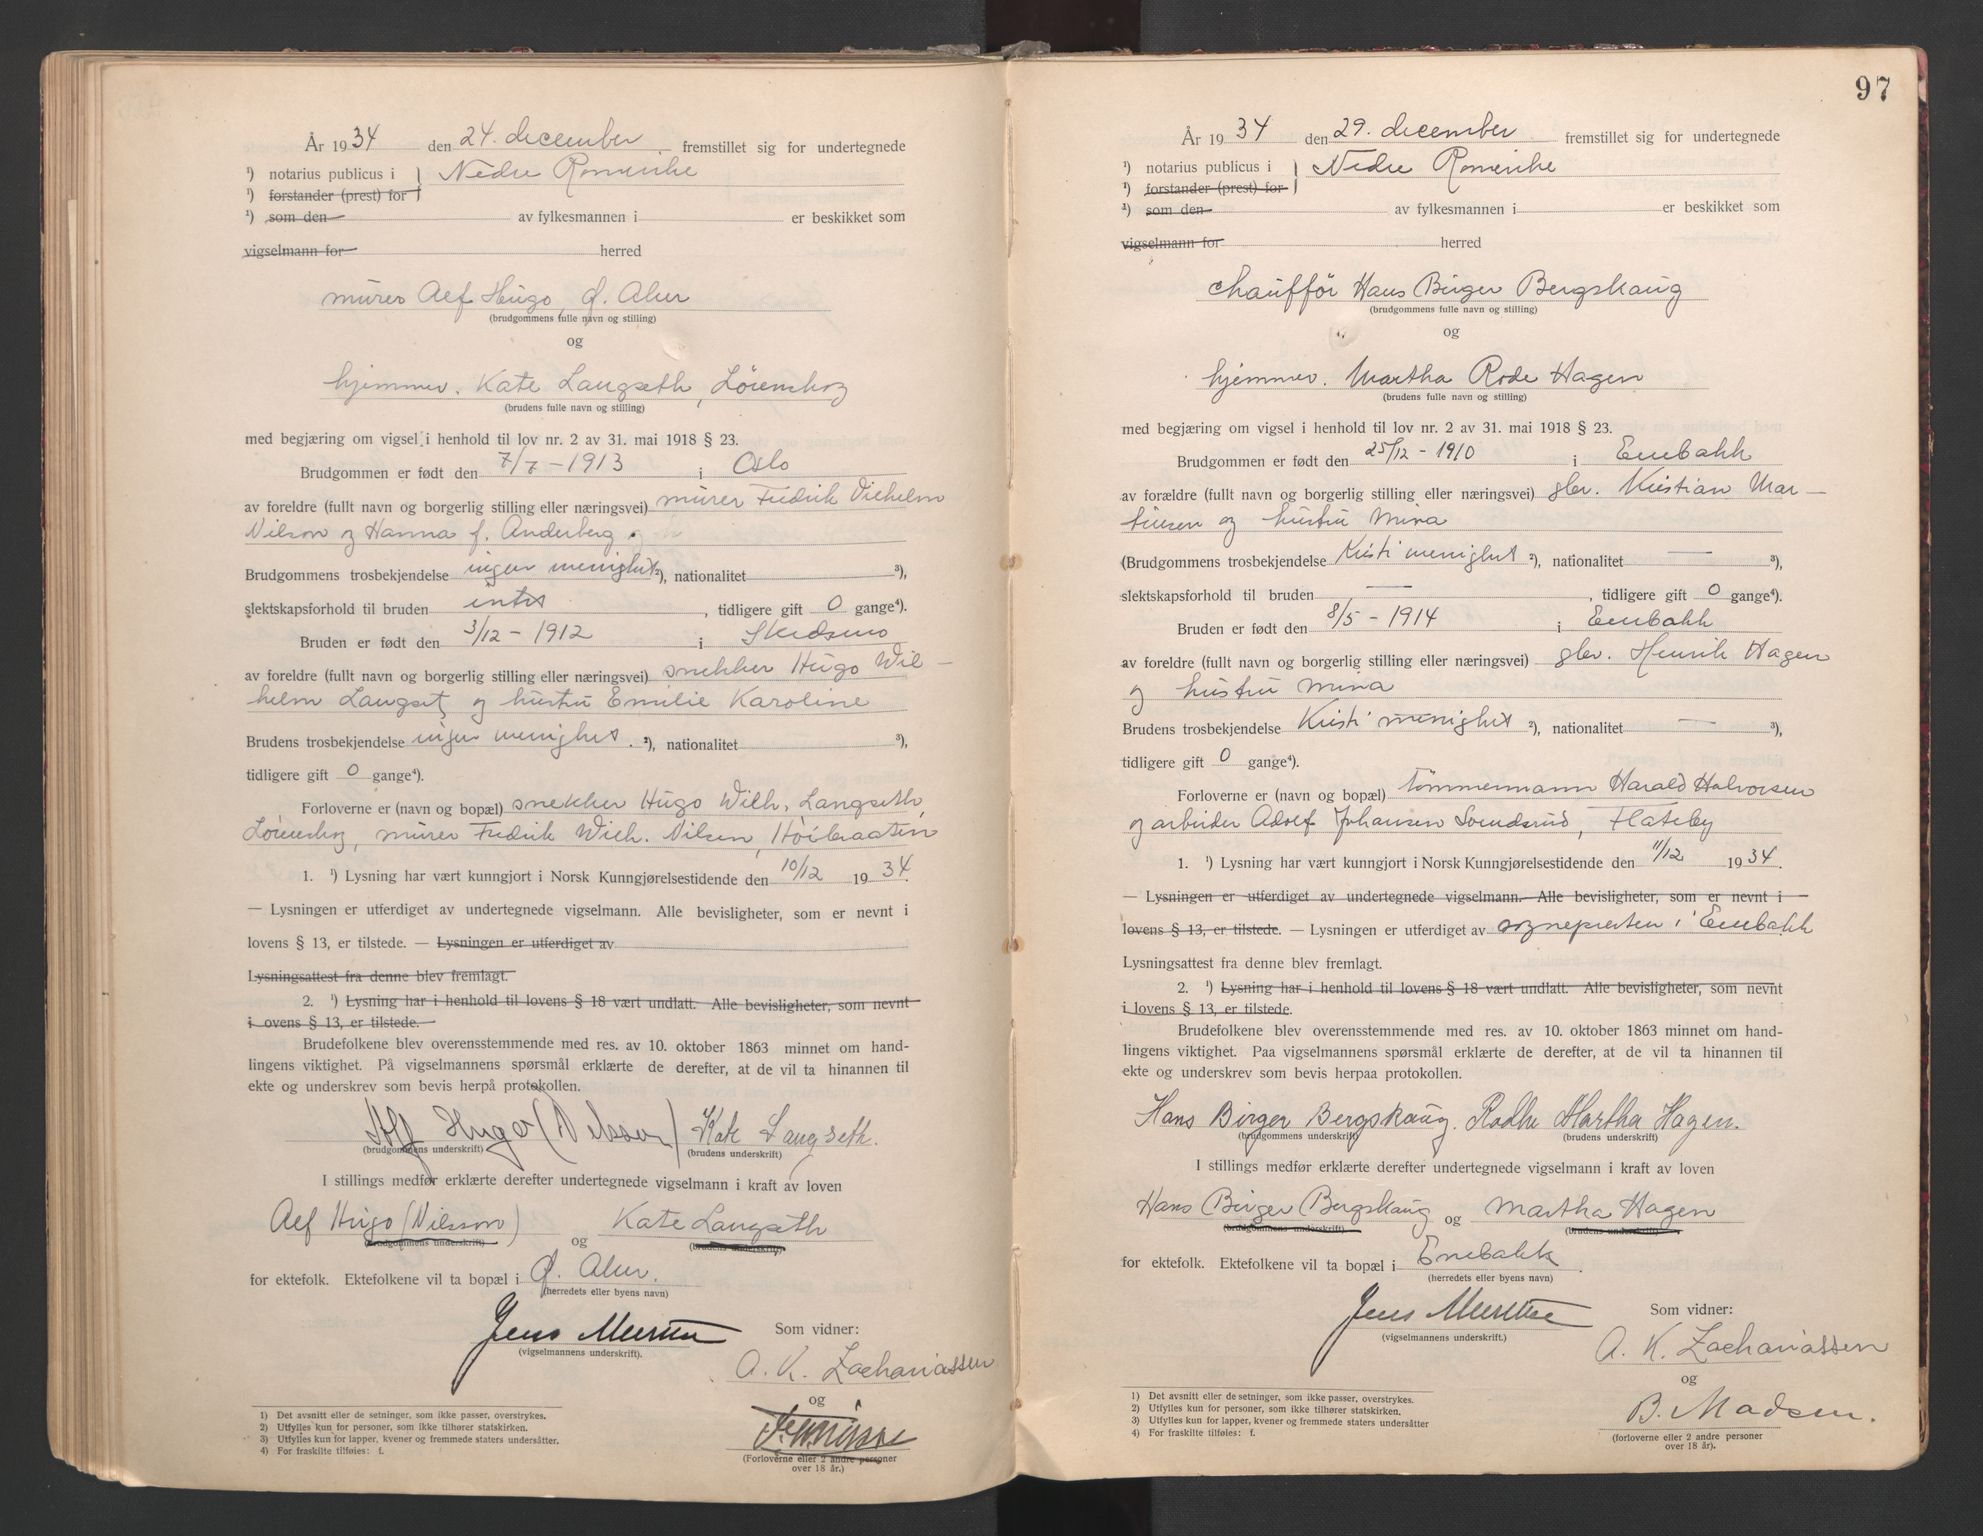 År 1934 den 24. december fremstillet sig for undertegnede
¹) notarius publicus i } Nedre Romerike
¹) forstander (prest) for
¹) som den av fylkesmannen i er beskikket som
vigselmann for herred
murer Alf Hugo, Ø. Aker
(brudgommens fulle navn og stilling)
og
hjemmev. Kate Langseth, Lørenskog
(brudens fulle navn og stilling)
med begjæring om vigsel i henhold til lov nr. 2 av 31. mai 1918 § 23.
Brudgommen er født den 7/7 - 1913 i Oslo
av foreldre (fullt navn og borgerlig stilling eller næringsvei) murer Fredrik Vilhelm
Nilson og Hanna f. Anderberg.
Brudgommens trosbekjendelse ingen menighet ²), nationalitet ³),
slektskapsforhold til bruden intet, tidligere gift 0 gange⁴).
Bruden er født den 3/12 - 1912 i Skedsmo
av foreldre (fullt navn og borgerlig stilling eller næringsvei) snekker Hugo Wil-
helm Langset og hustru Emilie Karoline
Brudens trosbekjendelse ingen menighet. ²), nationalitet ³),
tidligere gift 0 gange⁴).
Forloverne er (navn og bopæl) snekker Hugo Wilh. Langseth,
Lørenskog, murer Fredrik Wilh. Nilsen, Höibraaten
1. ¹) Lysning har vært kunngjort i Norsk Kunngjørelsestidende den 10/12 1934.
— Lysningen er utferdiget av undertegnede vigselmann. Alle bevisligheter, som er nevnt i
lovens § 13, er tilstede. — Lysningen er utferdiget av
Lysningsattest fra denne blev fremlagt.
2. ¹) Lysning har i henhold til lovens § 18 vært undlatt. Alle bevisligheter, som nevnt
i ovens § 13, er tilstede.
Brudefolkene blev overensstemmende med res. av 10. oktober 1863 minnet om hand-
lingens viktighet. På vigselmannens spørsmål erklærte de derefter, at de vil ta hinannen til
ekte og underskrev som bevis herpå protokollen.
Alf Hugo (Nilsson) Kate Langseth.
(brudgommens underskrift) (brudens underskrift)
I stillings medfør erklærte derefter undertegnede vigselmann i kraft av loven
Alf Hugo (Nilsson) og Kate Langseth
(brudgommens underskrift) (brudens underskrift)
for ektefolk. Ektefolkene vil ta bopæl i Ø. Aker.
(herredets eller byens navn)
Jens
(vigselmannens underskrift).
Som vidner:
A. K. Zachariassen
og
(Forloverne eller 2 andre personer
over 18 år.)
1) Det avsnitt eller de setninger, som ikke passer, overstrykes.
2) Utfylles kun for personer, som ikke tilhører statskirken.
3) Utfylles kun for lapper, kvener og fremmede staters undersåtter.
4) For fraskilte tilføies: f.
97
År 1934 den 29. december fremstillet sig for undertegnede
¹) notarius publicus i } Nedre Romerike
¹) forstander (prest) for
¹) som den av fylkesmannen i er beskikket som
vigselmann for herred
chaufför Hans Birger Bergskaug
(brudgommens fulle navn og stilling)
og
hjemmev. Martha Rode Hagen
(brudens fulle navn og stilling)
med begjæring om vigsel i henhold til lov nr. 2 av 31. mai 1918 § 23.
Brudgommen er født den 25/12 - 1910 i Enebakk
av forældre (fullt navn og borgerlig stilling eller næringsvei) gbr. Kristian Mar-
tinsen og hustru Mina
(Brudgommens trosbekjendelse Kristi menighet ²), nationalitet — ³),
slektskapsforhold til bruden —, tidligere gift 0 gange⁴).
Bruden er født den 8/5 - 1914 i Enebakk
av foreldre (fullt navn og borgerlig stilling eller næringsvei) gbr. Henrik Hagen
og hustru Mina
Brudens trosbekjendelse Kristi menighet ²), nationalitet — ³),
tidligere gift 0 gange⁴).
Forloverne er (navn og bopæl) tömmermann Harald Halvorsen
og arbeider Adolf Johansen Svendsrud, Flateby
1. ¹) Lysning har vært kunngjort i Norsk Kunngjørelsestidende den 11/12 1934.
— Lysningen er utferdiget av undertegnede vigselmann. Alle bevisligheter, som er nevnt i
lovens § 13, er tilstede. — Lysningen er utferdiget av sognepresten i Enebakk
Lysningsattest fra denne blev fremlagt.
2. ¹) Lysning har i henhold til lovens § 18 vært undlatt. Alle bevisligheter, som nevnt
i lovens § 13, er tilstede.
Brudefolkene blev overensstemmende med res. av 10. oktober 1863 minnet om hand-
lingens viktighet. Paa vigselmannens spørsmål erklærte de derefter, at de vil ta hinannen til
ekte og underskrev som bevis herpaa protokollen.
Hans Birger Bergskaug. Rodhe Martha Hagen.
(brudgommens underskrift) (brudens underskrift)
I stillings medfør erklærte derefter undertegnede vigselmann i kraft av loven
Hans Birger Bergskaug og Martha Hagen
(brudgommens underskrift) (brudens underskrift)
for ektefolk. Ektefolkene vil ta bopæl i Enebakk.
(herredets eller byens navn)
Jens
(vigselmannens underskrift.)
Som vidner:
A. K. Zachariassen
og
B. Madsen.
(forloverne eller 2 andre personer
over 18 år).
1) Det avsnitt eller de setninger, som ikke passer, overstrykes.
2) Utfylles kun for personer, som ikke tilhører statskirken.
3) Utfylles kun for lapper, kvener og fremmede staters undersåtter
4) For fraskilte tilføies: f.